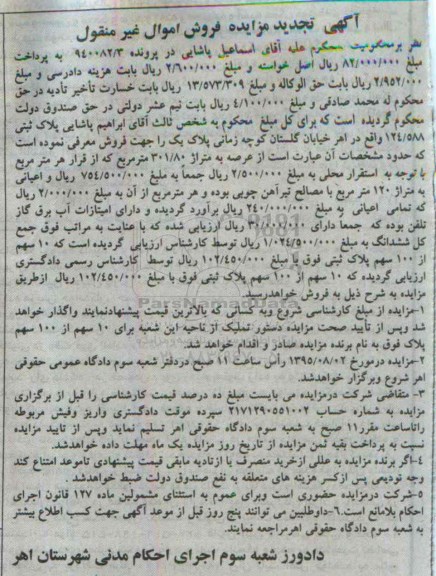 آگهی تجدید مزایده فروش اموال غیر منقول
نظر برمحکومیت محکوم علیه آقای اسماعیل پاشایی در پرونده ۹۴۰۰۸۲/۳ به پرداخت
مبلغ ۸۲/۰۰۰/۰۰۰ ریال اصل خواسته و مبلغ ۲/۶۰۰/۰۰۰ ریال بابت هزینه دادرسی و مبلغ
۲/۹۵۲/۰۰۰ ریال بابت حق الوکاله و مبلغ ۱۳/۵۷۳/۳۰۹ ریال بابت خسارت تأخیر تأدیه در حق
محکوم له محمد صادقی و مبلغ ۴/۱۰۰/۰۰۰ ریال بابت نیم عشر دولتی در حق صندوق دولت
محکوم گردیده است که برای کل مبلغ محکوم به شخص ثالث آقای ابراهیم پاشایی پلاک ثبتی
۱۲۴/۵۸۸ واقع در اهر خیابان گلستان کوچه زمانی پلاک یک را جهت فروش معرفی نموده است
که حدود مشخصات آن عبارت است از عرصه به متراژ ۳۰۱/۸۰ مترمربع که از قرار هر متر مربع
با توجه به استقرار محلی به مبلغ ۲/۵۰۰/۰۰۰ ریال جمعاً به مبلغ ۷۵۴/۵۰۰/۰۰۰ ریال و اعیانی
به متراژ ۱۲۰ متر مربع با مصالح تیرآهن چوبی بوده و هر مترمربع از آن به مبلغ ۲/۰۰۰/۰۰۰ ریال
که تمامی اعیانی به مبلغ ۲۴۰/۰۰۰/۰۰۰ ریال برآورد گردیده و دارای امتیازات آب برق گاز
تلفن بوده که جمعاً دارای ۳۰/۰۰۰/۰۰۰ ریال ارزیابی شده که با عنایت به مراتب فوق جمع
کل ششدانگ به مبلغ ۱/۰۲۴/۵۰۰/۰۰۰ ریال توسط کارشناس ارزیابی گردیده است که ۱۰ سهم
از ۱۰۰ سهم پلاک ثبتی فوق با مبلغ ۱۰۲/۴۵۰/۰۰۰ ریال توسط کارشناس رسمی دادگستری
ارزیابی گردیده که ۱۰ سهم از ۱۰۰ سهم پلاک ثبتی فوق با مبلغ ۱۰۲/۴۵۰/۰۰۰ ریال ازطریق
مزایده به شرح ذیل به فروش خواهدرسید.
۱-مزایده از مبلغ کارشناسی شروع وبه کسانی که بالاترین قیمت پیشنهادنمایند واگذار خواهد
شد وپس از تأیید صحت مزایده دستور تملیک از ناحیه این شعبه برای ۱۰ سهم از ۱۰۰ سهم
پلاک فوق به نام برنده مزایده صادر و اقدام خواهد شد.
۲-مزایده درمورخ ۱۳۹۵/۰۸/۰۲ رأس ساعت ۱۱ صبح دردفتر شعبه سوم دادگاه عمومی حقوقی
اهر شروع وبرگزار خواهدشد.
۳- متقاضی شرکت درمزایده می بایست مبلغ ده درصد قیمت کارشناسی را قبل از برگزاری
مزایده به شماره حساب ۲۱۷۱۲۹۰۵۵۱۰۰۲ سپرده موقت دادگستری واریز وفیش مربوطه
راتاساعت مقرر۱۱ صبح به شعبه سوم دادگاه حقوقی اهر تسلیم نماید وپس از تایید مزایده
نسبت به پرداخت بقیه ثمن مزایده از تاریخ روز مزایده یک ماه مهلت داده خواهدشد.
۴-اگر برنده مزایده به عللی ازخرید منصرف یا ازتادیه مابقی قیمت پیشنهادی تاموعد امتناع کند
وجه تودیعی پس ازکسر هزینه های متعلقه به نفع صندوق دولت ضبط خواهدشد.
۵-شرکت درمزایده حضوری است وبرای عموم به استثنای مشمولین ماده ۱۲۷ قانون اجرای
احکام بلامانع است.۶-داوطلبین می توانند پنج روز قبل از موعد آگهی جهت کسب اطلاع بیشتر
به شعبه سوم دادگاه حقوقی اهرمراجعه نمایند.
دادورز شعبه سوم اجرای احکام مدنی شهرستان اهر